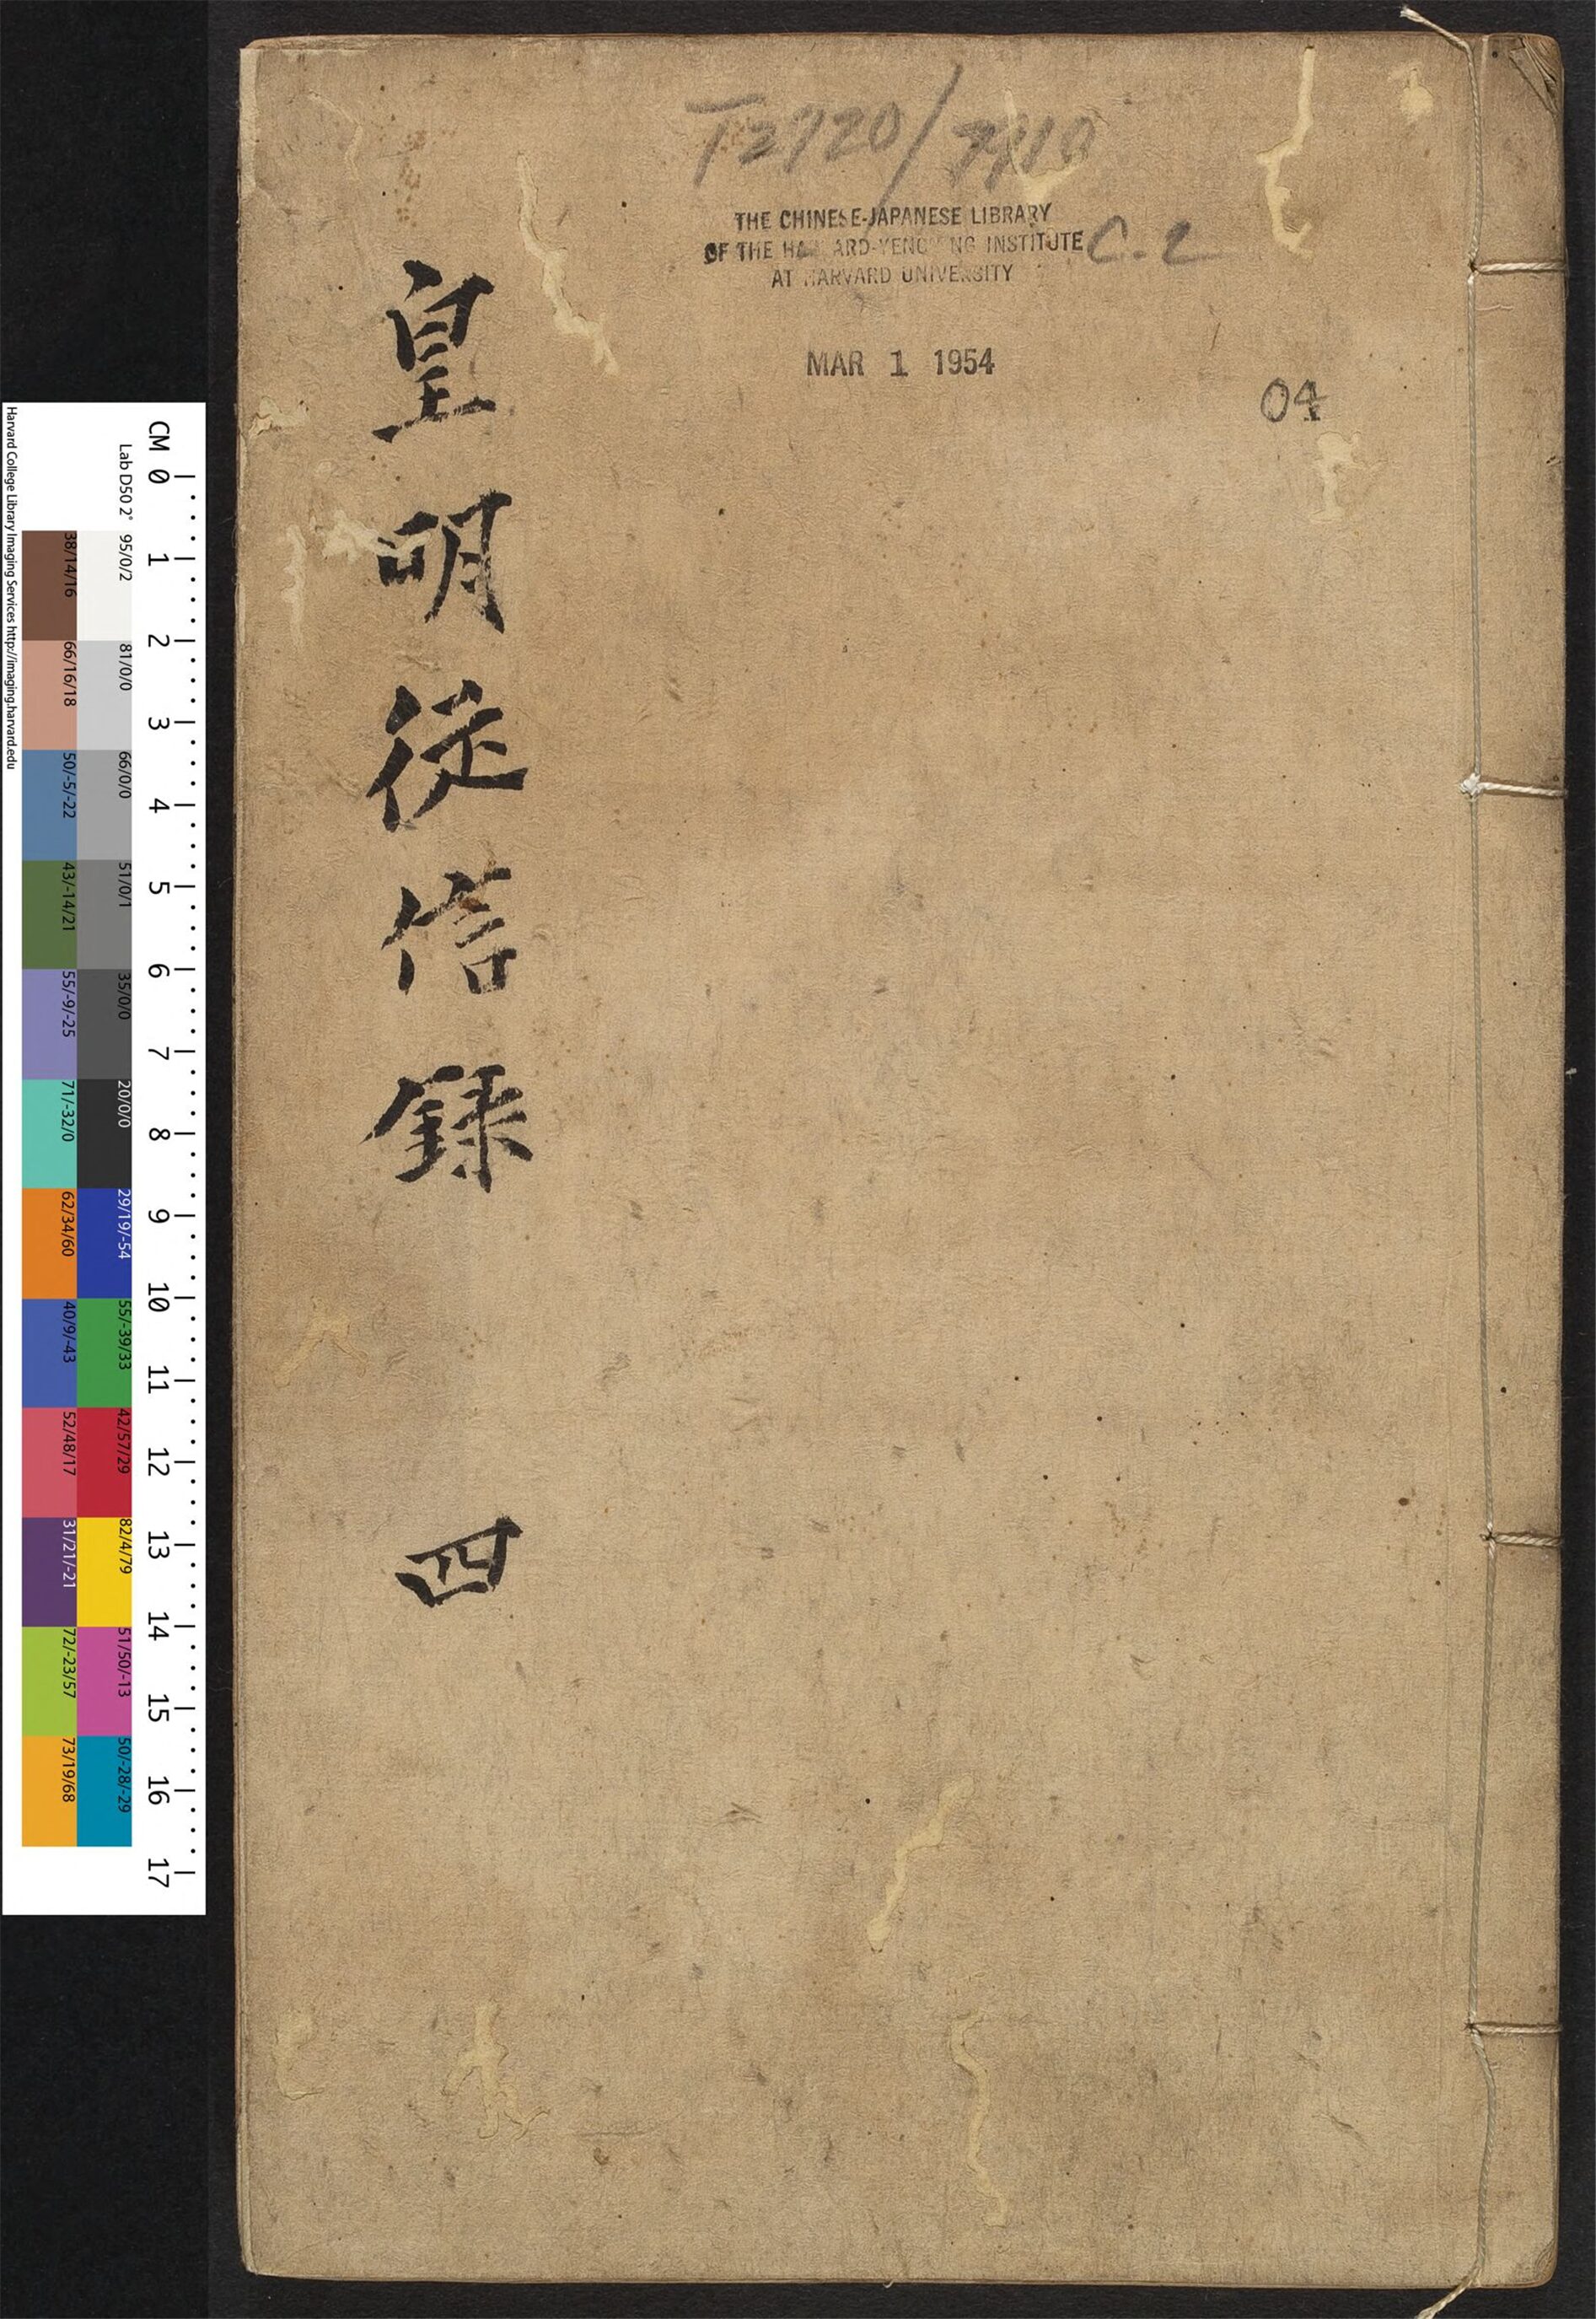 T2720/7910
THE CHINESE-JAPANESE LIBRARY
OF THE HARVARD-YENCHING INSTITUTE
AT HARVARD UNIVERSITY
C.2
MAR 1 1954
04
皇明従信録
四
CM 0 1 2 3 4 5 6 7 8 9 10 11 12 13 14 15 16 17
Lab D50 2° 95/0/2 81/0/0 66/0/0 51/0/1 35/0/0 20/0/0 29/19/-54 55/-39/33 42/57/29 82/4/79 51/50/-13 50/-28/-29
38/14/16 66/16/18 50/-5/-22 43/-14/21 55/-9/-25 71/-32/0 62/34/60 40/9/-43 52/48/17 31/21/-21 72/-23/57 73/19/68
Harvard College Library Imaging Services http://imaging.harvard.edu